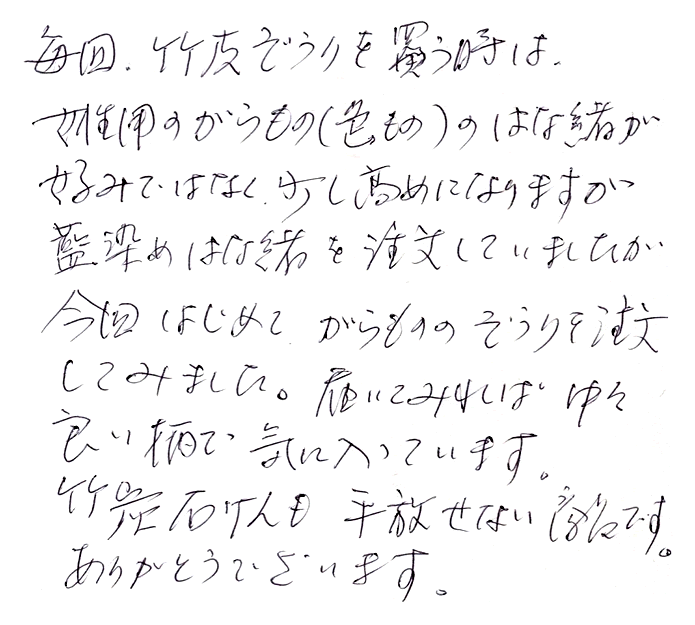 毎回、竹皮ぞうりを買う時は、
女性用のがらもの(色もの)のはな緒が
好みではなく、少し高めになりますが
藍染めはな緒を注文していましたが
今回はじめて がらもののぞうりを注文
してみました。届いてみれば 中々
良い柄で 気に入っています。
竹炭石けんも 手放せない です。
ありがとうございます。